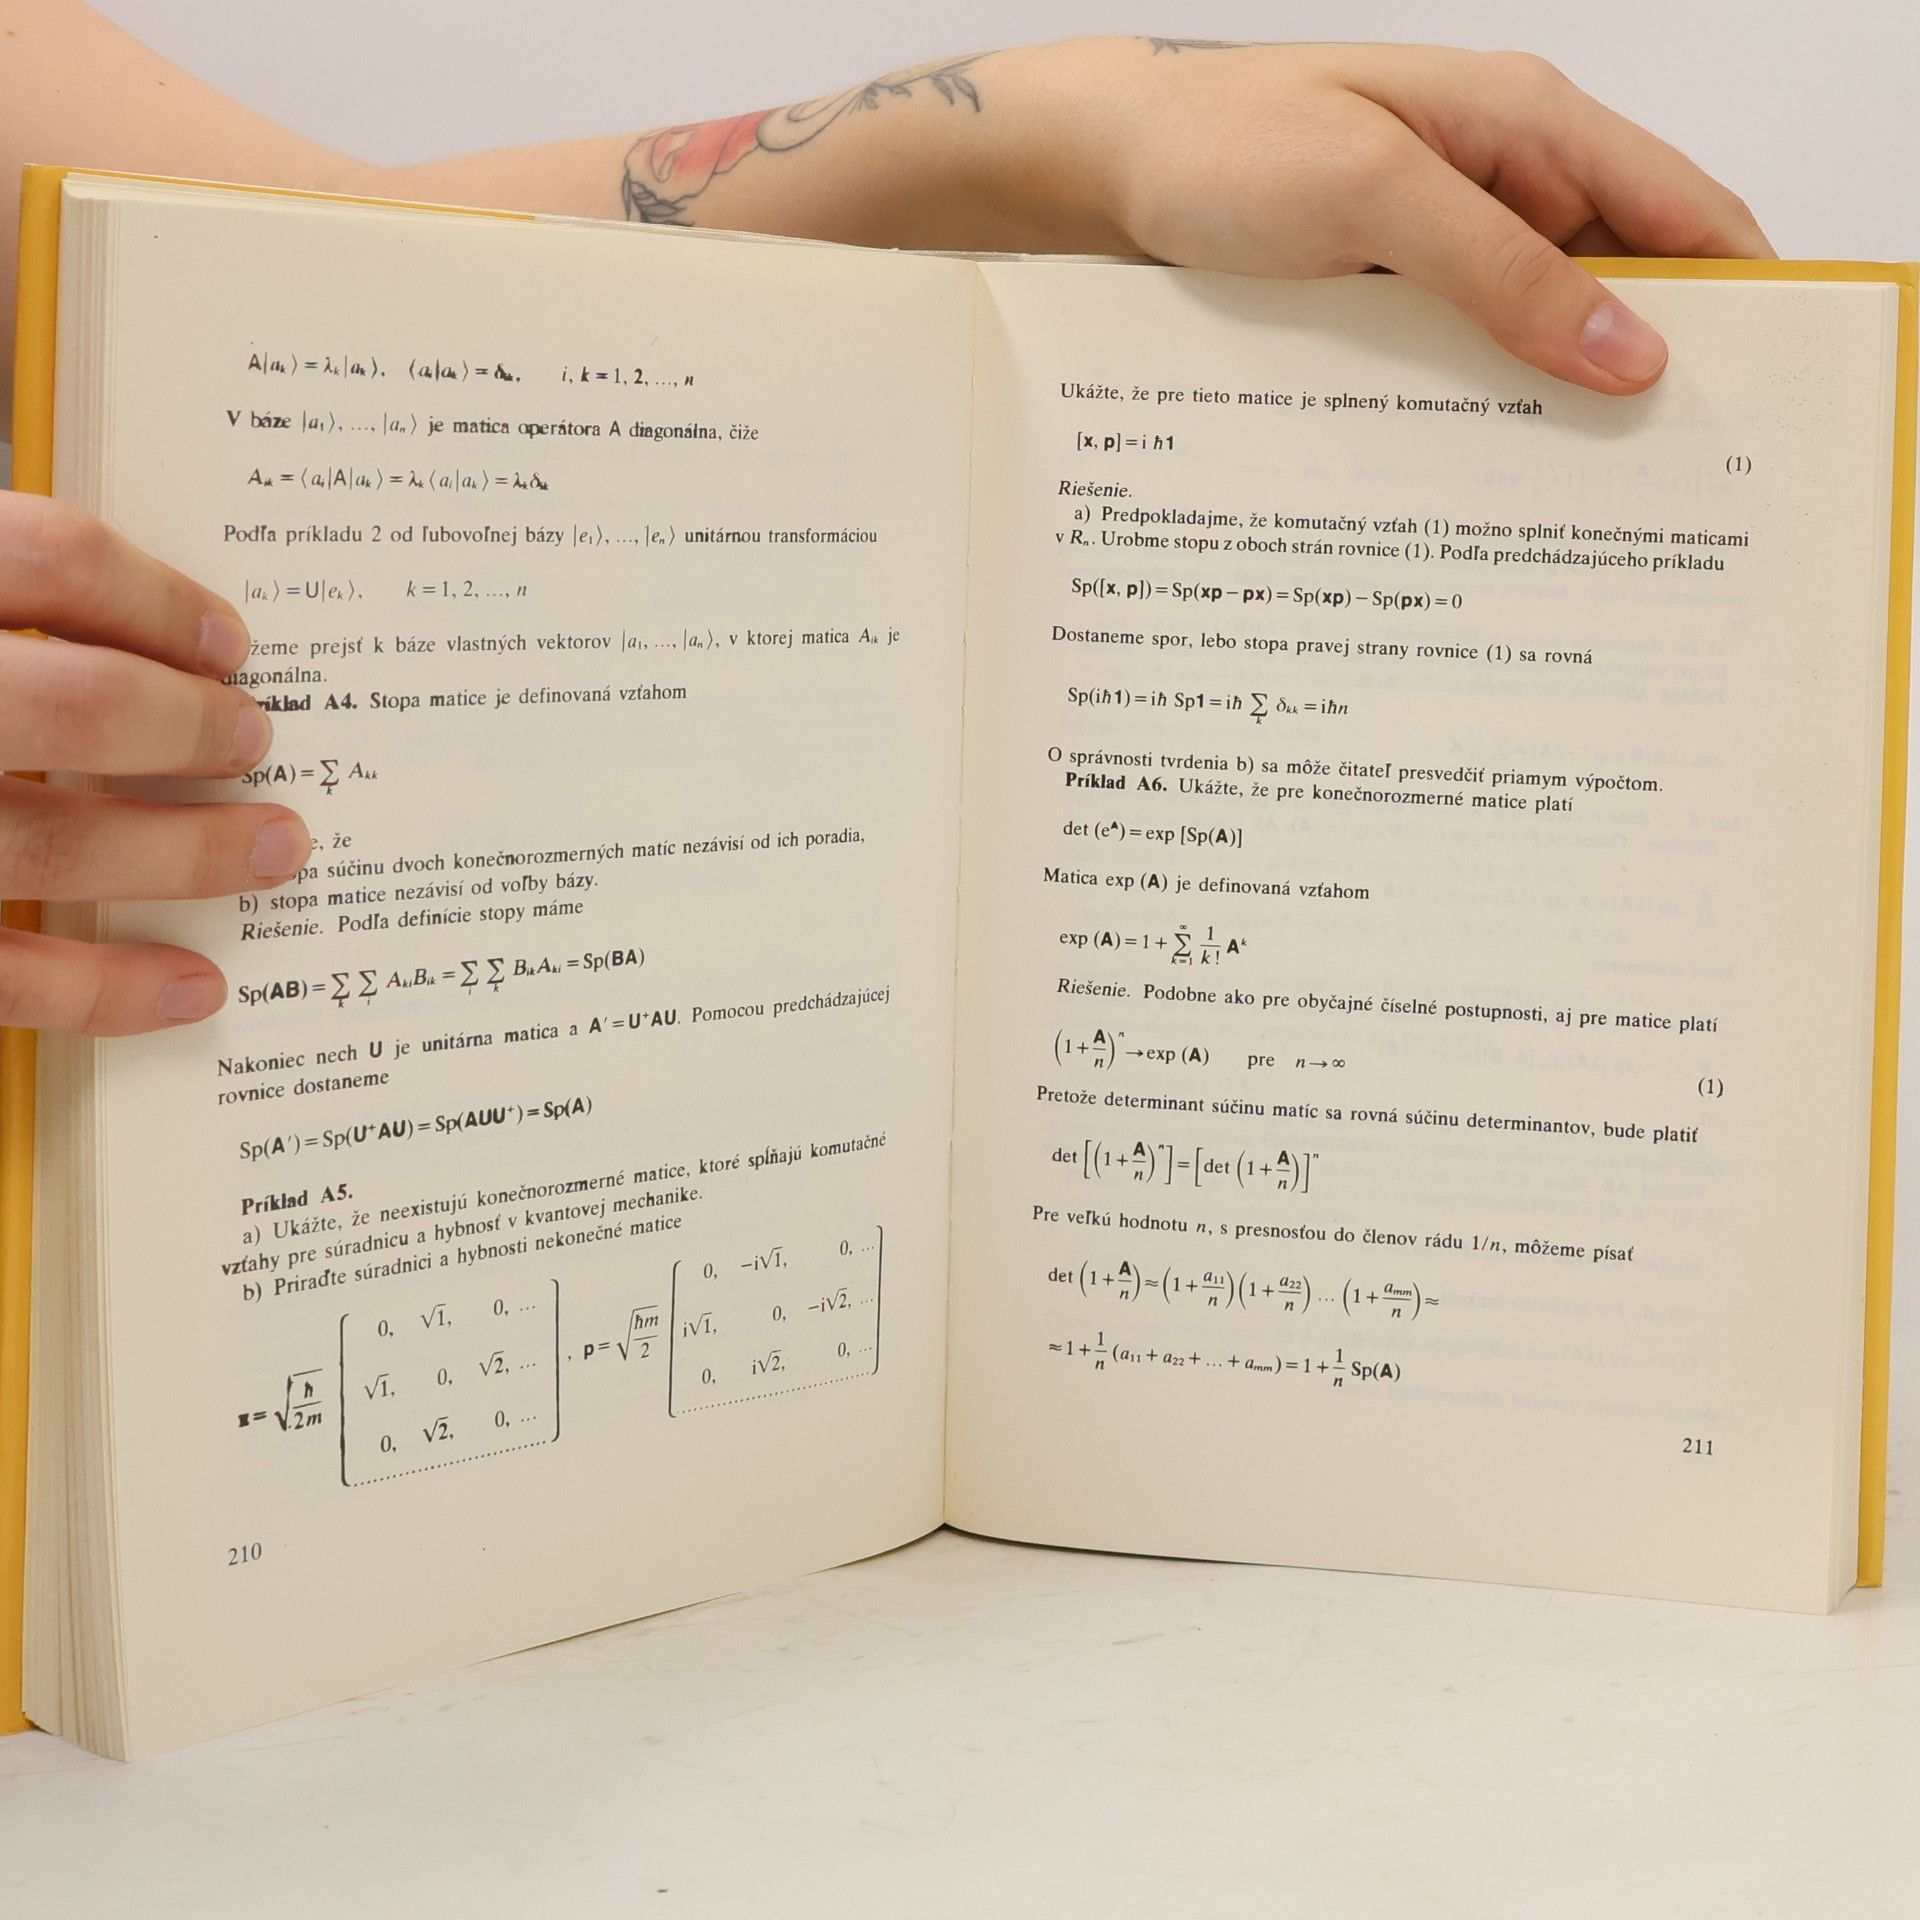 A|aₖ⟩ = λₖ|aₖ⟩, ⟨aᵢ|aₖ⟩ = δᵢₖ, i, k = 1, 2, ..., n
V báze |a₁⟩, ..., |aₙ⟩ je matica operátora A diagonálna, čiže
Aᵢₖ = ⟨aᵢ|A|aₖ⟩ = λₖ⟨aᵢ|aₖ⟩ = λₖδᵢₖ
Podľa príkladu 2 od ľubovoľnej bázy |e₁⟩, ..., |eₙ⟩ unitárnou transformáciou
|aₖ⟩ = U|eₖ⟩, k = 1, 2, ..., n
žeme prejsť k báze vlastných vektorov |a₁, ..., |aₙ⟩, v ktorej matica Aᵢₖ je
diagonálna.
ríklad A4. Stopa matice je definovaná vzťahom
Sp(A) = ∑ₖ Aₖₖ
e, že
opa súčinu dvoch konečnorozmerných matíc nezávisí od ich poradia,
b) stopa matice nezávisí od voľby bázy.
Riešenie. Podľa definície stopy máme
Sp(AB) = ∑ₖ ∑ᵢ AₖᵢBᵢₖ = ∑ᵢ ∑ₖ BᵢₖAₖᵢ = Sp(BA)
Nakoniec nech U je unitárna matica a A′ = U⁺AU. Pomocou predchádzajúcej
rovnice dostaneme
Sp(A′) = Sp(U⁺AU) = Sp(AUU⁺) = Sp(A)
Príklad A5.
a) Ukážte, že neexistujú konečnorozmerné matice, ktoré spĺňajú komutačné
vzťahy pre súradnicu a hybnosť v kvantovej mechanike.
b) Priraďte súradnici a hybnosti nekonečné matice
0, √1, 0, ... 0, −i√1, 0, ...
x = √(ħ/2m) √1, 0, √2, ... , p = √(ħm/2) i√1, 0, −i√2, ...
0, √2, 0, ... 0, i√2, 0, ...
210
Ukážte, že pre tieto matice je splnený komutačný vzťah
[x, p] = i ħ1 (1)
Riešenie.
a) Predpokladajme, že komutačný vzťah (1) možno splniť konečnými maticami
v Rₙ. Urobme stopu z oboch strán rovnice (1). Podľa predchádzajúceho príkladu
Sp([x, p]) = Sp(xp − px) = Sp(xp) − Sp(px) = 0
Dostaneme spor, lebo stopa pravej strany rovnice (1) sa rovná
Sp(iħ1) = iħ Sp1 = iħ ∑ₖ δₖₖ = iħn
O správnosti tvrdenia b) sa môže čitateľ presvedčiť priamym výpočtom.
Príklad A6. Ukážte, že pre konečnorozmerné matice platí
det (eᴬ) = exp [Sp(A)]
Matica exp (A) je definovaná vzťahom
exp (A) = 1 + ∑ₖ₌₁^∞ 1/k! Aᵏ
Riešenie. Podobne ako pre obyčajné číselné postupnosti, aj pre matice platí
(1 + A/n)ⁿ → exp (A) pre n → ∞ (1)
Pretože determinant súčinu matíc sa rovná súčinu determinantov, bude platiť
det [(1 + A/n)ⁿ] = [det (1 + A/n)]ⁿ
Pre veľkú hodnotu n, s presnosťou do členov rádu 1/n, môžeme písať
det (1 + A/n) ≈ (1 + a₁₁/n)(1 + a₂₂/n) ... (1 + aₘₘ/n) ≈
≈ 1 + 1/n (a₁₁ + a₂₂ + ... + aₘₘ) = 1 + 1/n Sp(A)
211